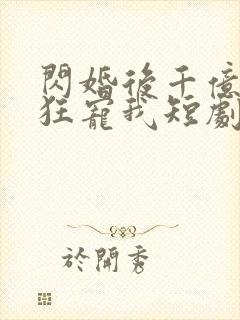 閃婚後千億
狂寵我短劇
於開秀